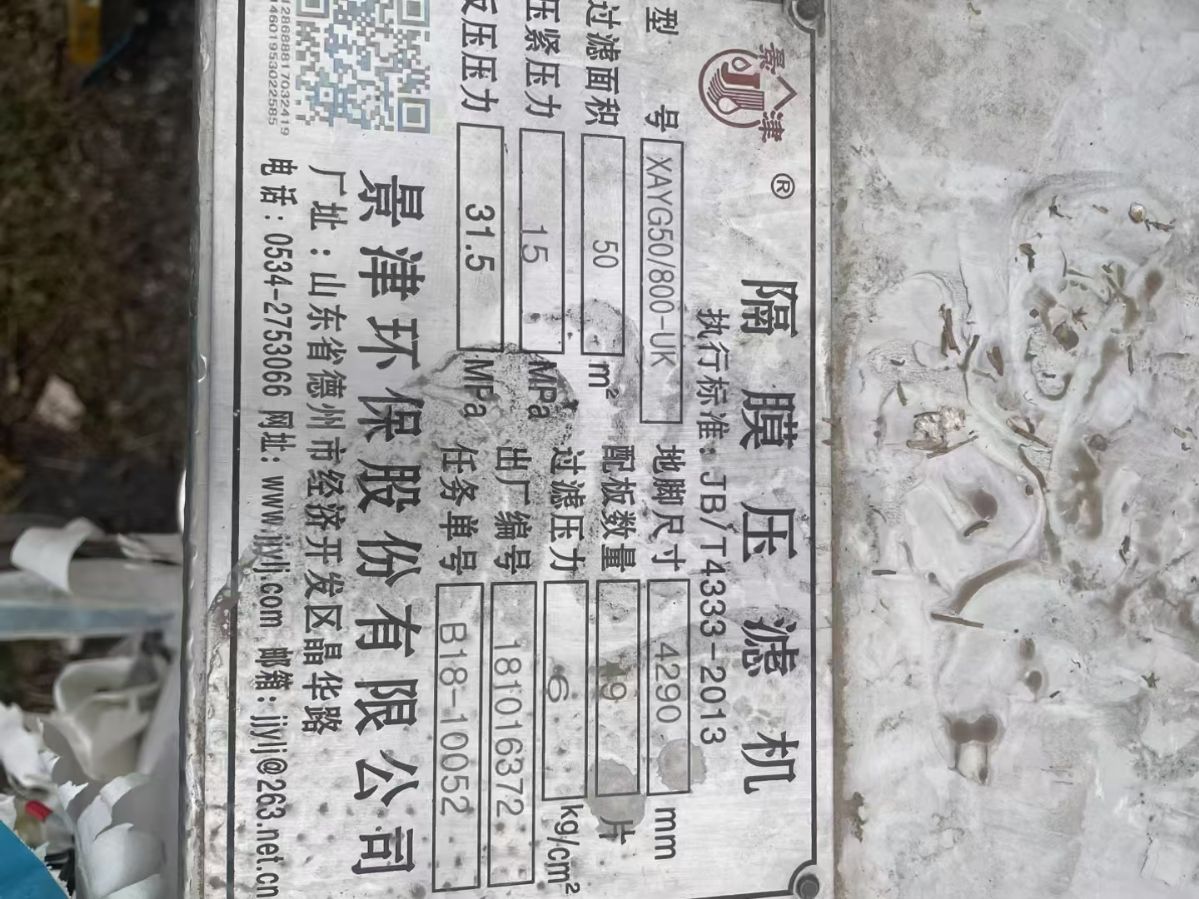 景津 ®
隔膜压滤机
执行标准：JB/T4333-2013
型号 XAYG50/800-UK 地脚尺寸 4290 mm
过滤面积 50 m² 配板数量 片
压紧压力 15 MPa 过滤压力 6 kg/cm²
压压力 31.5 MPa 出厂编号 181016372
任务单号 B18-10052
景津环保股份有限公司
厂址：山东省德州市经济开发区晶华路
电话：0534-2753066 网址：www.jjylj.com 邮箱：jjylj@263.net.cn